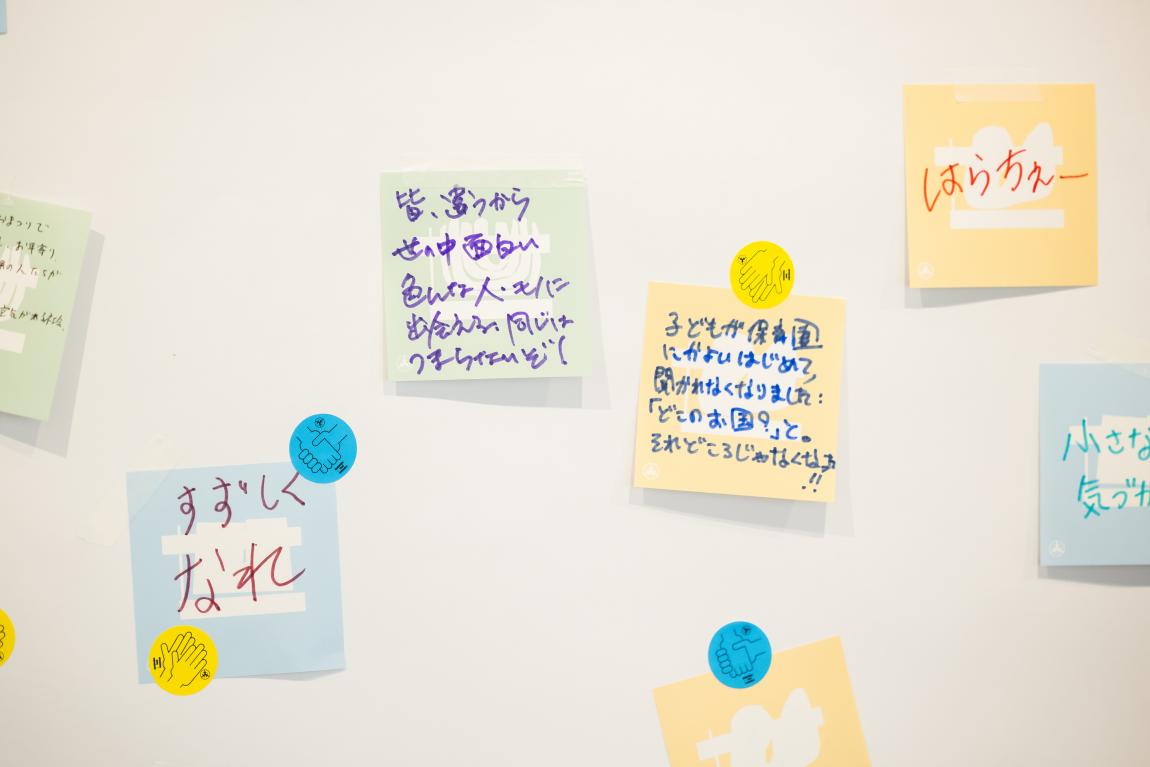 おまつりで
お年寄り
の人たちが
皆、違うから
世の中面白い
色んな人・文化に
出会える、同じは
つまらないぞ!
すずしく
なれ
子どもが保育園
にかよいはじめて、
聞かれなくなりました:
「どこのお国?」と。
それどころじゃなくなった
!!
はらちぇー
小さな
気づか